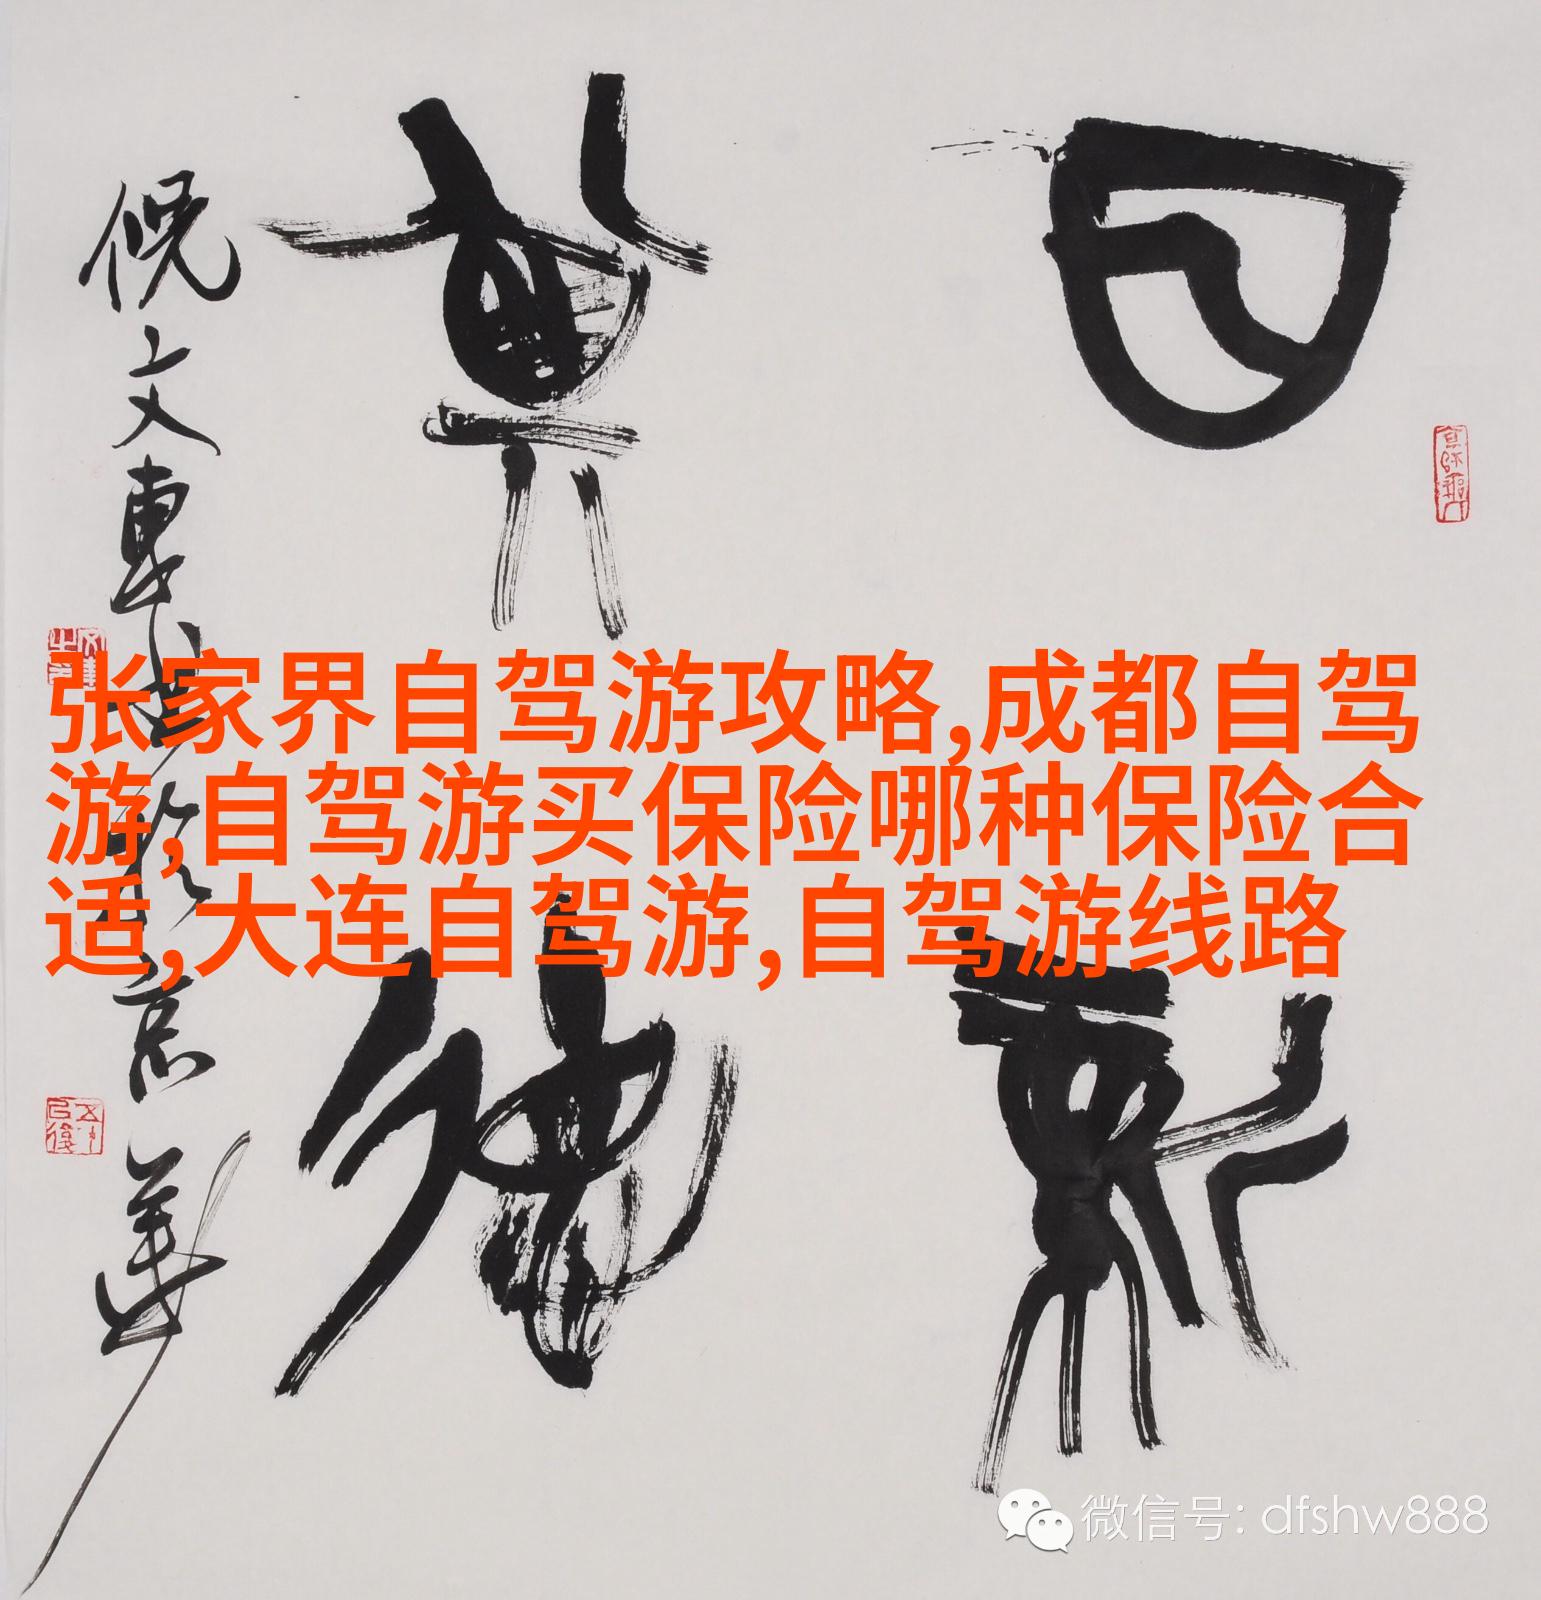 日新
其德
倪文東書於京華
张家界自驾游攻略,成都自驾
游,自驾游买保险哪种保险合
适,大连自驾游,自驾游线路
微信号: dfshw888